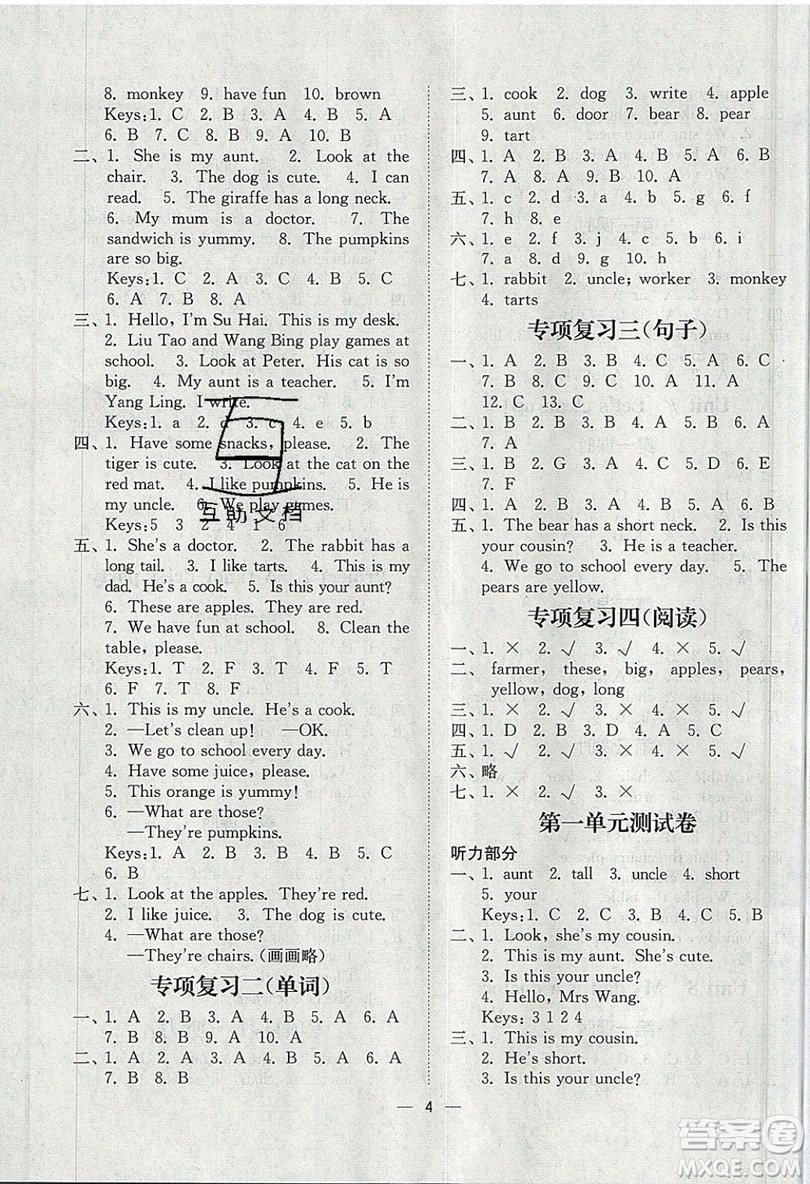 8. monkey 9. have fun 10. brown
Keys:1. C 2. B 3. A 4. B 5. A
6. B 7. B 8. B 9. A 10. B
二、1. She is my aunt. 2. Look at the
chair. 3. The dog is cute. 4. I can
read. 5. The giraffe has a long neck.
6. My mum is a doctor. 7. The
sandwich is yummy. 8. The pumpkins
are so big.
Keys:1. C 2. A 3. C 4. B 5. C
6. A 7. B 8. A
三、1. Hello, I'm Su Hai. This is my desk.
2. Liu Tao and Wang Bing play games at
school. 3. Look at Peter. His cat is so
big. 4. My aunt is a teacher. 5. I'm
Yang Ling. I write.
Keys:1. a 2. d 3. c 4. e 5. b
四、1. Have some snacks, please. 2. The
tiger is cute. 3. Look at the cat on the
red mat. 4. I like pumpkins. 5. He is
my uncle. 6. We play games.
Keys:5 3 2 4 1 6
互助文档
五、1. She's a doctor. 2. The rabbit has a
long tail. 3. I like tarts. 4. This is my
dad. He's a cook. 5. Is this your aunt?
6. These are apples. They are red.
7. We have fun at school. 8. Clean the
table, please.
Keys:1. T 2. F 3. T 4. F 5. T
6. F 7. T 8. F
六、1. This is my uncle. He's a cook.
2. —Let's clean up! —OK.
3. We go to school every day.
4. Have some juice, please.
5. This orange is yummy!
6. —What are those?
—They're pumpkins.
Keys:1. A 2. B 3. A 4. A 5. B
6. B
七、1. Look at the apples. They're red.
2. I like juice. 3. The dog is cute.
4. —What are those?
—They're chairs.(画画略)
专项复习二(单词)
一、1. A 2. B 3. B 4. A 5. A 6. A
7. B 8. B 9. A 10. A
二、1. B 2. A 3. A 4. B 5. B 6. A
7. B 8. B
三、1. cook 2. dog 3. write 4. apple
5. aunt 6. door 7. bear 8. pear
9. tart
四、1. A 2. B 3. B 4. A 5. A 6. B
7. A 8. A 9. B 10. A
五、1. c 2. d 3. a 4. b 5. g 6. f
7. h 8. e
六、1. e 2. f 3. j 4. c 5. b 6. i
7. a 8. d 9. g 10. h
七、1. rabbit 2. uncle; worker 3. monkey
4. tarts
专项复习三(句子)
一、1. A 2. B 3. B 4. C 5. A 6. C
7. B 8. C 9. B 10. A 11. A
12. C 13. C
二、1. B 2. B 3. B 4. A 5. B 6. A
7. A
三、1. B 2. G 3. A 4. D 5. C 6. E
7. F
四、1. A 2. B 3. B 4. C 5. A 6. C
五、1. The bear has a short neck. 2. Is this
your cousin? 3. He is a teacher.
4. We go to school every day. 5. The
pears are yellow.
专项复习四(阅读)
一、1. × 2. √ 3. √ 4. × 5. √
二、farmer, these, big, apples, pears,
yellow, dog, long
三、1. × 2. √ 3. × 4. × 5. √
四、1. D 2. B 3. D 4. A 5. C
五、1. √ 2. √ 3. √ 4. × 5. √
六、略
七、1. × 2. √ 3. ×
第一单元测试卷
听力部分
一、1. aunt 2. tall 3. uncle 4. short
5. your
Keys:1. C 2. C 3. B 4. B 5. C
二、1. Look, she's my cousin.
2. This is my aunt. She's cute.
3. Is this your uncle?
4. Hello, Mrs Wang.
Keys: 3 1 2 4
三、1. This is my cousin.
2. He's short.
3. Is this your uncle?
— 4 —
答案圈
MXQE.COM